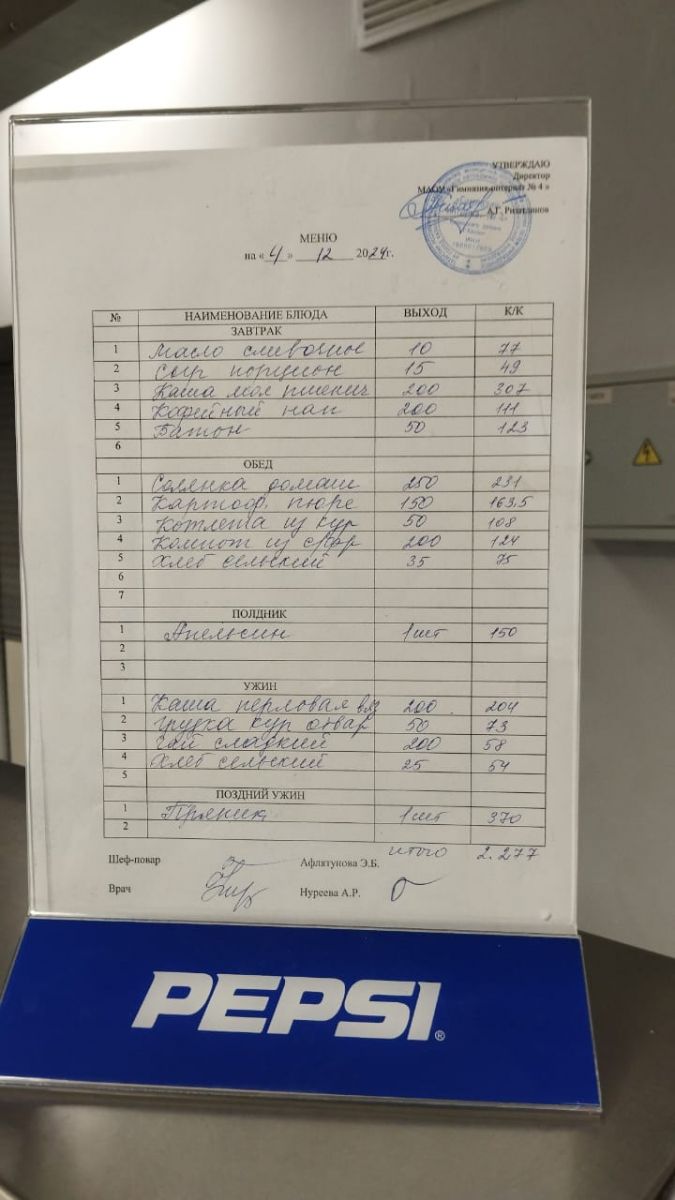 УТВЕРЖДАЮ
Директор
МАОУ «Гимназия-интернат № 4 »
А.Г.
МЕНЮ
на « 4 » 12 2024г.
№ НАИМЕНОВАНИЕ БЛЮДА ВЫХОД К/К
ЗАВТРАК
1 Масло сливочное 10 77
2 Сыр порцион 15 49
3 Каша мол пшенич 200 307
4 Кофейный нап 200 111
5 Батон 50 123
6
ОБЕД
1 Солянка домаш 250 231
2 Картоф. пюре 150 163.5
3 Котлета из кур 50 108
4 Компот из 200 124
5 Хлеб сельский 35 75
6
7
ПОЛДНИК
1 Апельсин 1шт 150
2
3
УЖИН
1 Каша перловая вяз 200 204
2 Грудка кур отвар 50 73
3 Чай сладкий 200 58
4 Хлеб сельский 25 54
5
ПОЗДНИЙ УЖИН
1 Пряник 1шт 370
2
итого 2.277
Шеф-повар Афлятунова Э.Б.
Врач Нуреева А.Р.
PEPSI®